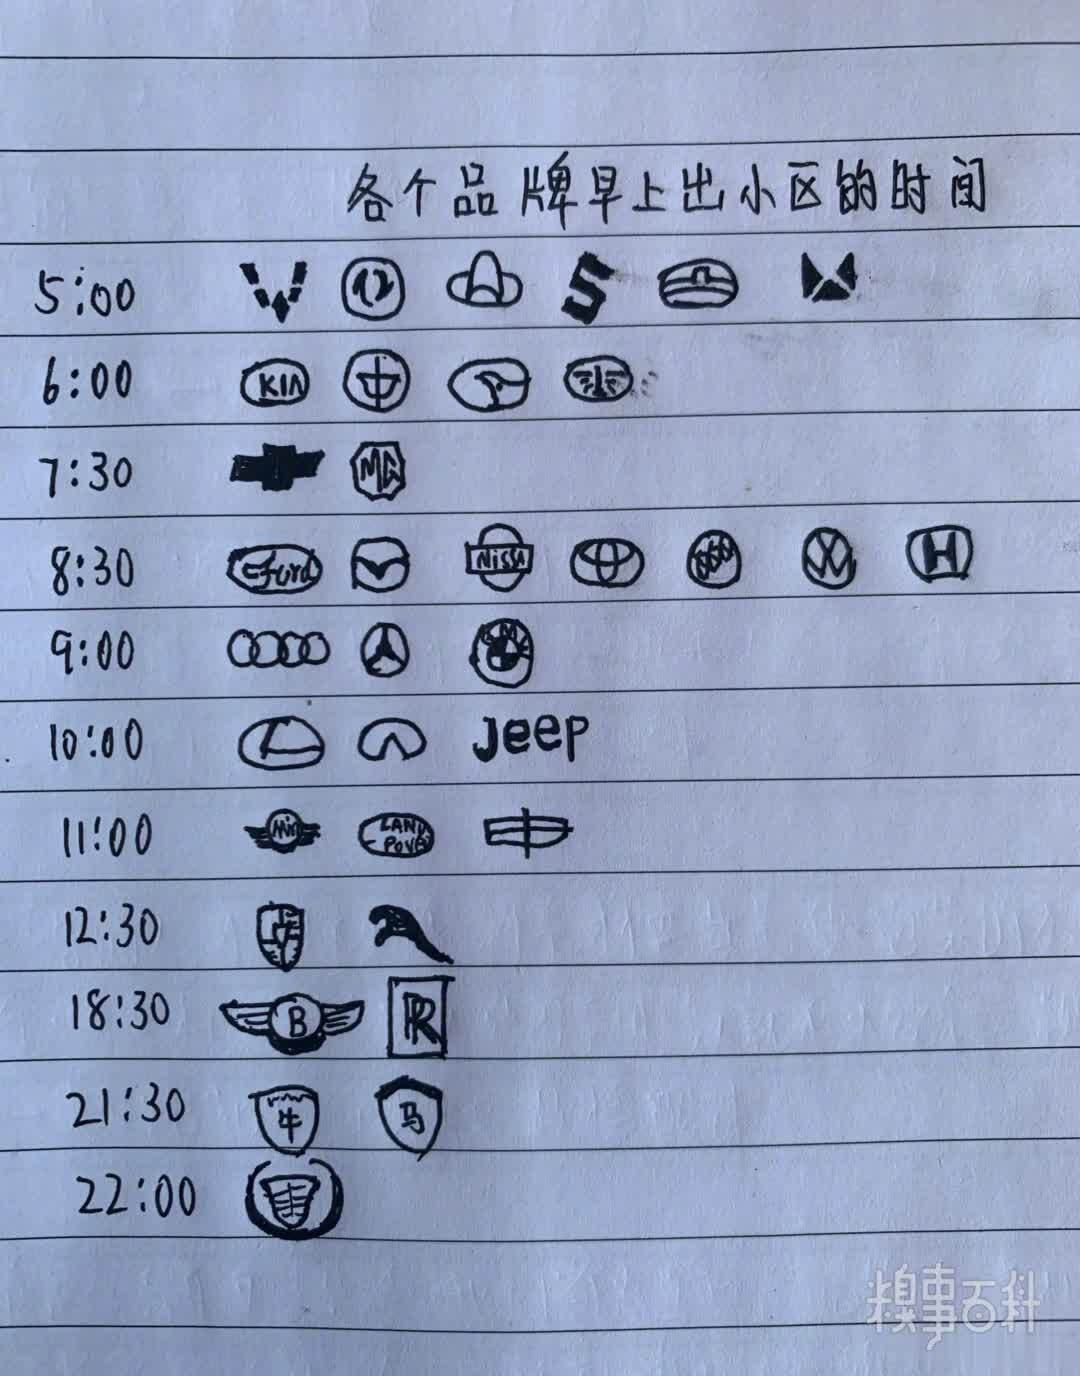 各个品牌早上出小区的时间
5:00
6:00 KIA
7:30 MG
8:30 Ford NISSA H
9:00 BMW
10:00 Jeep
11:00 LAND ROVE
12:30
18:30 B RR
21:30 牛 马
22:00
糗事百科